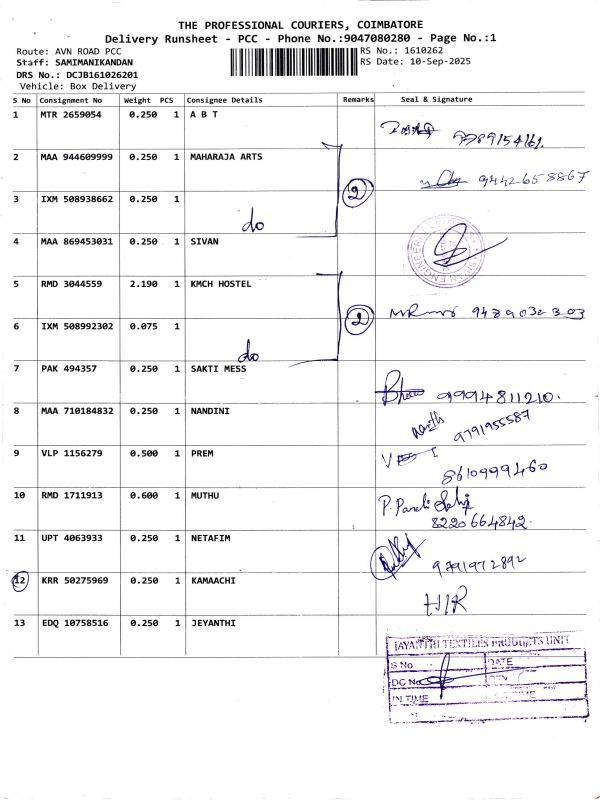 THE PROFESSIONAL COURIERS, COIMBATORE
Delivery Runsheet - PCC - Phone No.:9047080280 - Page No.:1
Route: AVN ROAD PCC
RS No.: 1610262
Staff: SAMIMANIKANDAN
RS Date: 10-Sep-2025
DRS No.: DCJB161026201
Vehicle: Box Delivery
S No Consignment No Weight PCS Consignee Details Remarks Seal & Signature
1 MTR 2659054 0.250 1 A B T
9789154161.
2 MAA 944609999 0.250 1 MAHARAJA ARTS
2 9442658867
3 IXM 508938662 0.250 1
do
4 MAA 869453031 0.250 1 SIVAN
5 RMD 3044559 2.190 1 KMCH HOSTEL
2 9489032303
6 IXM 508992302 0.075 1
do
7 PAK 494357 0.250 1 SAKTI MESS
9994811210.
8 MAA 710184832 0.250 1 NANDINI
9791955587
9 VLP 1156279 0.500 1 PREM
8610999460
10 RMD 1711913 0.600 1 MUTHU
8220664842.
11 UPT 4063933 0.250 1 NETAFIM
9791972892
12 KRR 50275969 0.250 1 KAMAACHI
H/R
13 EDQ 10758516 0.250 1 JEYANTHI
JAYANTHI TEXTILES PRODUCTS UNIT
S No DATE
DC No
IN TIME